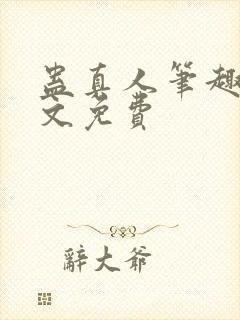 蛊真人筆趣
文免費
辭大爺